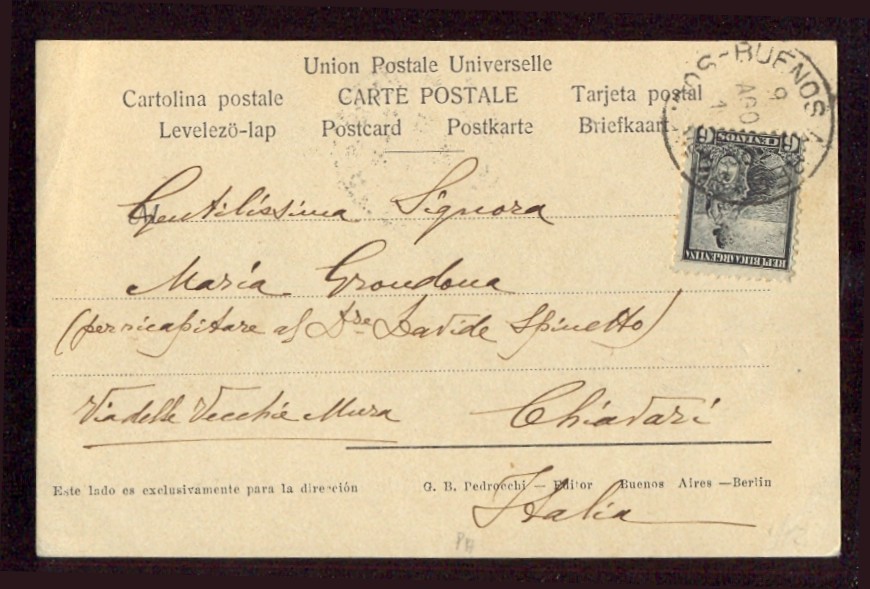 Union Postale Universelle
Cartolina postale CARTE POSTALE Tarjeta postal
Levelező-lap Postcard Postkarte Briefkaart
OS-BUENOS A
9
AGO
6 CENTAVOS 6
REPUBLICA ARGENTINA
Gentilissima Signora
María Grondona
(per ricapitare al Dre Davide Spinetto)
Via delle Vecchie Mura Chiavari
Italia
Este lado es exclusivamente para la dirección G. B. Pedrocchi — Editor Buenos Aires —Berlin